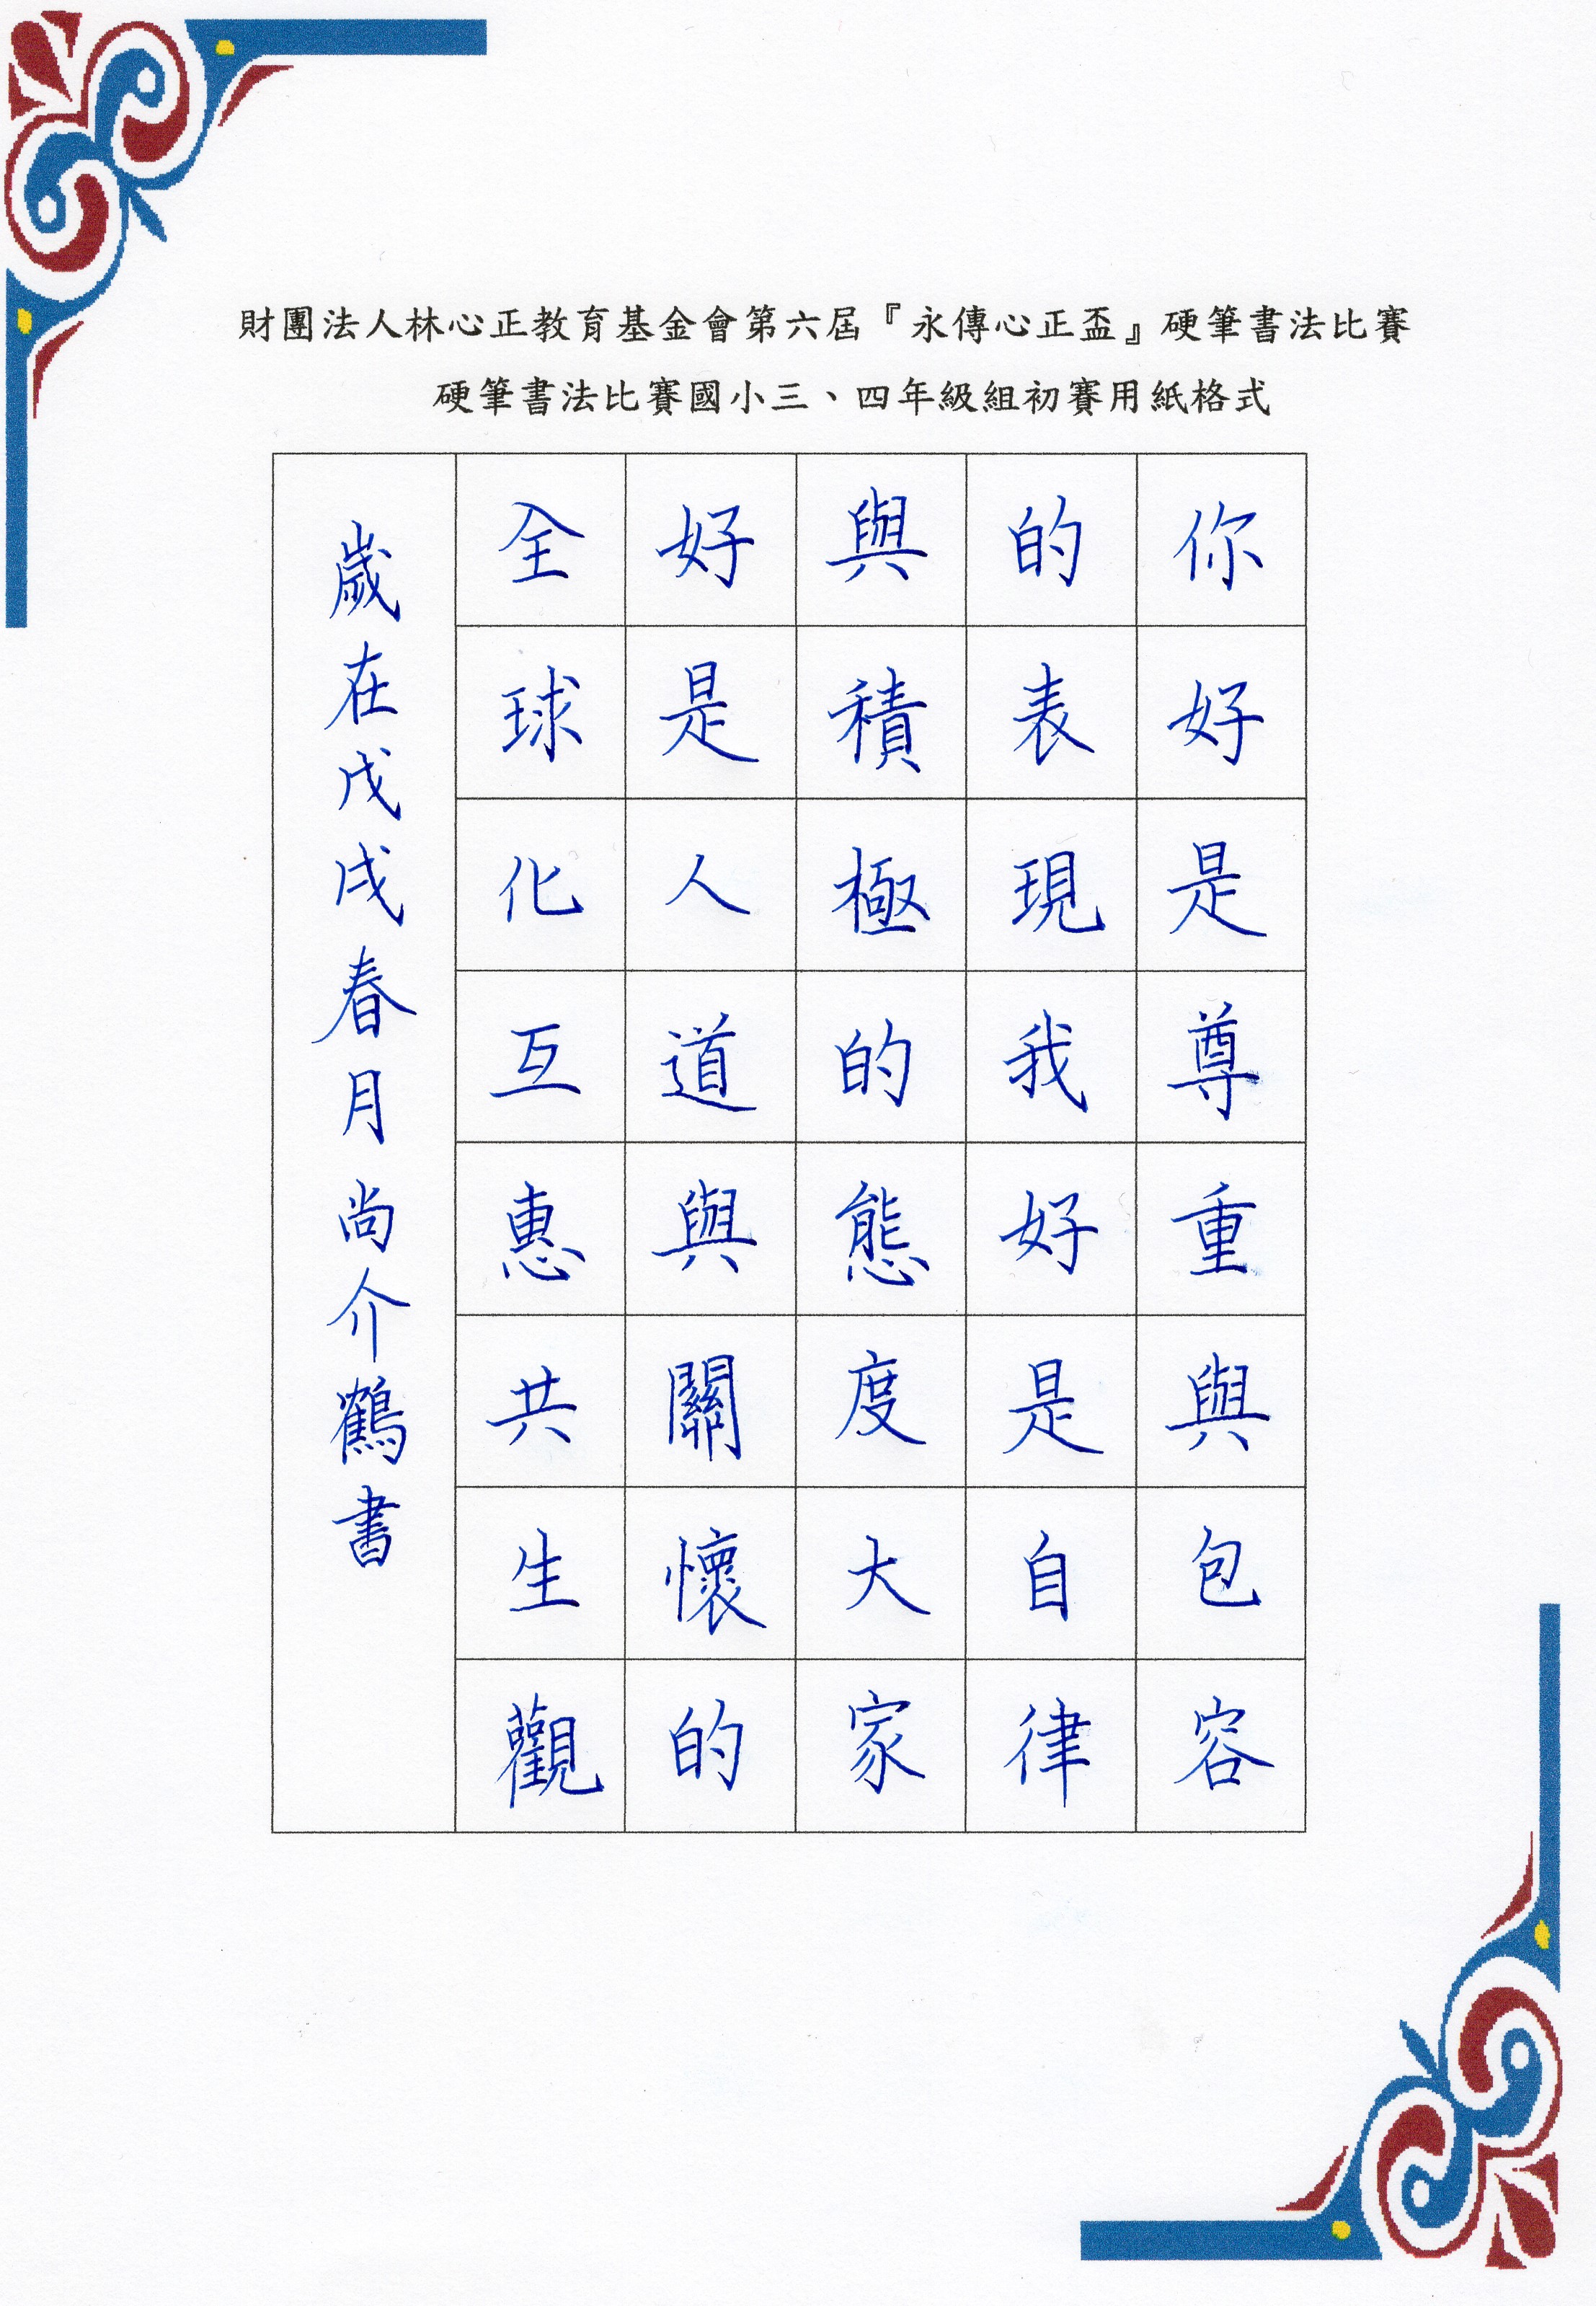 財團法人林心正教育基金會第六屆『永傳心正盃』硬筆書法比賽
硬筆書法比賽國小三、四年級組初賽用紙格式
你好是尊重與包容
的表現我好是自律
與積極的態度大家
好是人道與關懷的
全球化互惠共生觀
歲在戊戌春月尚介鶴書